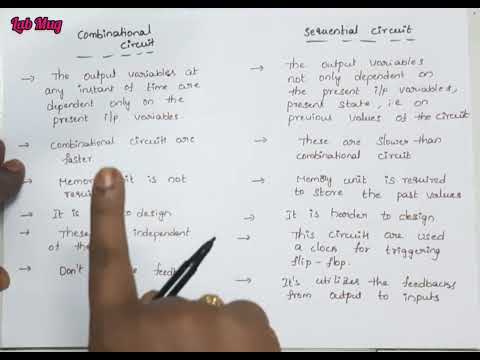 Lab Mug
Combinational
Circuit
→ The output variables at
any instant of time are
dependent only on the
present i/p variables.
→ Combinational circuits are
faster
→ Memory is not
→ It is to design
→ These independent
of the
→ Don't the
Sequential circuit
→ The output variables
not only dependent on
the present i/p variables,
present state, i.e on
previous values of the circuit
→ These are slower than
combinational circuit
→ Memory unit is required
to store the past values
→ It is harder to design
→ This circuit are used
a clock for triggering
flip-flop.
→ It's utilizes the feedbacks
from output to inputs